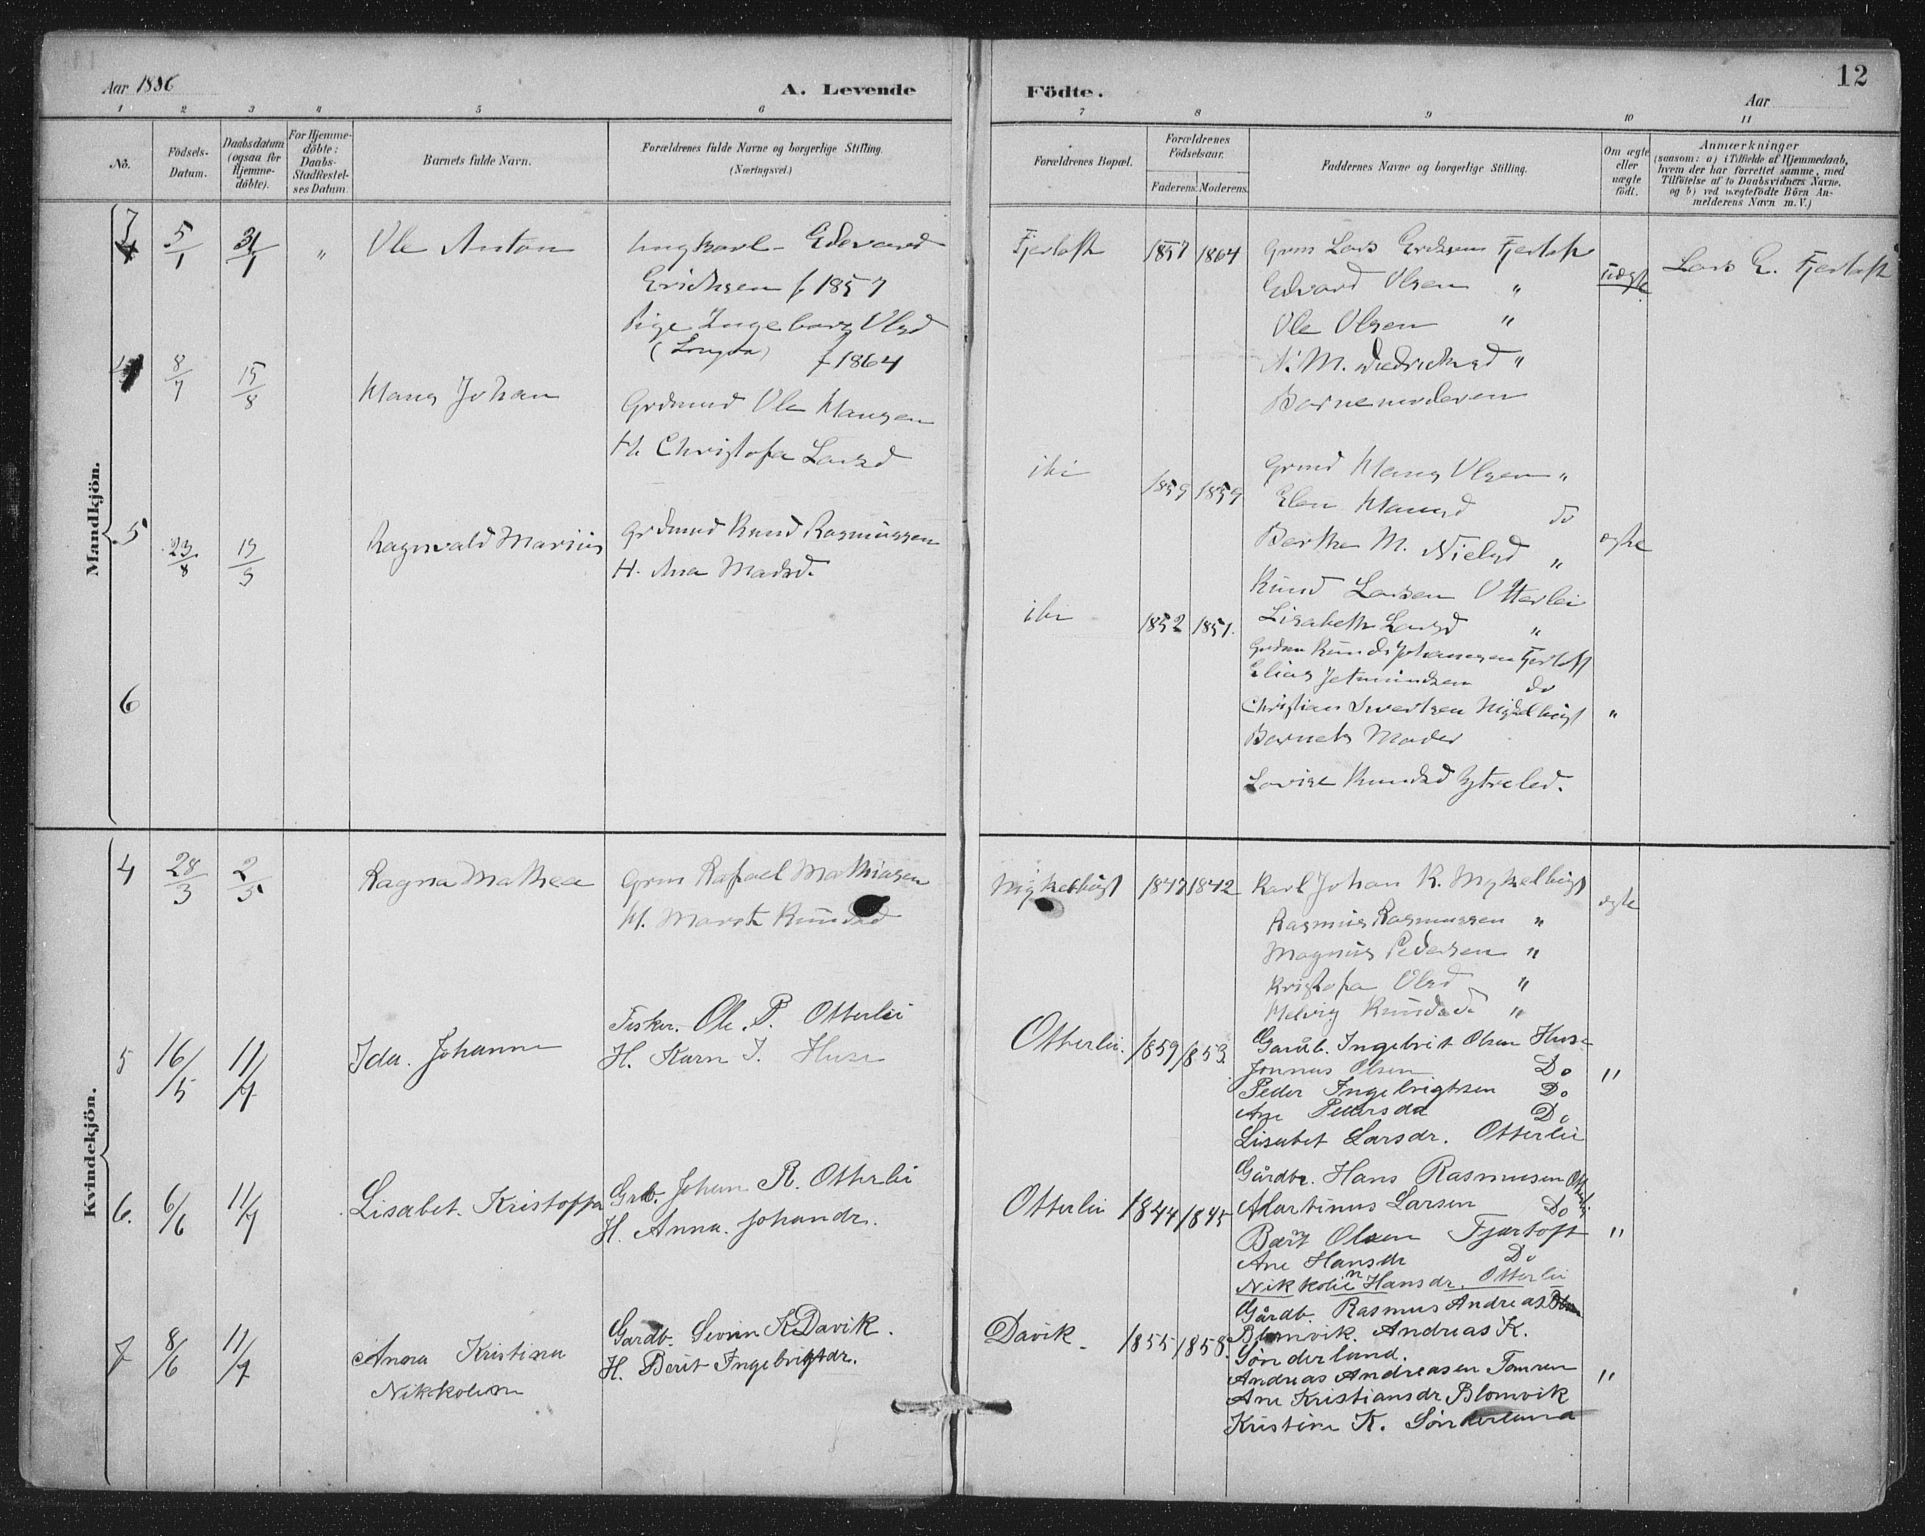 Aar 1886
A. Levende
Födte.
Aar
12
1 2 3 4 5 6 7 8 9 10 11
No.
Födsels-Datum.
Daabsdatum (ogsaa for Hjemme-döbte).
For Hjemme-döbte: Daabs-Stadfæstel-ses Datum.
Barnets fulde Navn.
Forældrenes fulde Navne og borgerlige Stilling. (Næringsvei.)
Forældrenes Bopæl.
Forældrenes Födselsaar.
Faderens. Moderens.
Faddernes Navne og borgerlige Stilling.
Om ægte eller uægte födt.
Anmærkninger
(saasom: a) i Tilfælde af Hjemmedaab,
hvem der har forrettet samme, med
Tilföielse af to Daabsvidners Navne.
og b) ved uægtefödte Börn An-
melderens Navn m. V.)
Mandkjön.
5/1 31/1 " Ole Anton
Ungkarl Edevard
Ericksen f 1857
Pige Ingeborg Olsd
(Longva) f 1864
Fjertoft 1857 1864
Grm Lars Ericksen Fjertoft
Edvard Olsen "
Ole Olsen "
N. M. Diedricksd "
Barnemoderen
uægte
Lars E. Fjertoft
4 8/7 15/8 Hans Johan
Grdmand Ole Hansen
H. Christofa Larsd
ibi 1859 1859
Grmd Hans Olsen "
Elen Hansd do
Berthe M. Nielsd "
Knud Larsen Otterlei
Lisabeth Larsd "
ægte
5 23/8 19/9 Ragnvald Marius
Grdmand Knud Rasmussen
H. Ana Madsd.
ibi 1852 1851.
Grdm Knud Johannsen Fjertoft
Elias Jetmundsen do
Christian Sivertsen Myklebust
Barnets Moder
Lovise Knudsd Ytreled.
"
6
Kvindekjön.
4 28/3 2/5 Ragna Mathea
Grm Rafael Mathiasen
H. Marte Knudsd
Myklebust 1847 1842
Karl Johan K. Myklebust
Rasmus Rasmussen "
Magnus Pedersen "
Kristofa Olsd "
Helvig Knudsd "
ægte
5 16/5 11/7 Ida. Johanne
Fisker. Ole. P. Otterlei
H. Karn I. Huse
Otterlei. 1859 1853.
Gaardb. Ingebrit Olsen Huse
Jonnus Olsen Do
Peder Ingebrigtsen Do
Ane Pedersdr Do
Lisabet Larsdr. Otterlei
"
6. 6/6 11/7 Lisabet. Kristoffa
Grb. Johan R. Otterlei
H. Anna. Johandr.
Otterlei 1844 1845
Gårdbr. Hans Rasmusen Otterlei
Martinus Larsen Do
Bært Olsen Fjærtoft
Ane Hansdr Do
Nikkoline Hansdr. Otterlei
"
7 8/6 11/7 Anna Kristina
Nikkoline
Gardb. Sevrin K. Davik.
H. Berit Ingebrigtdr.
Davik. 1855 1858.
Gårdb. Rasmus Andreas
Blomvik. Andreas K.
Sönderland.
Andreas Andreasen Tomren
Ane Kristiansdr Blomvik
Kristine K. Sönderland
"